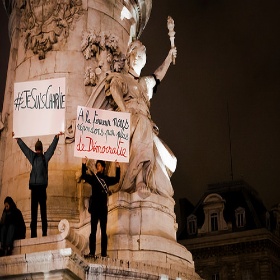 #JESUISCHARLIE
A la terreur nous
répondons par plus
de Démocratie